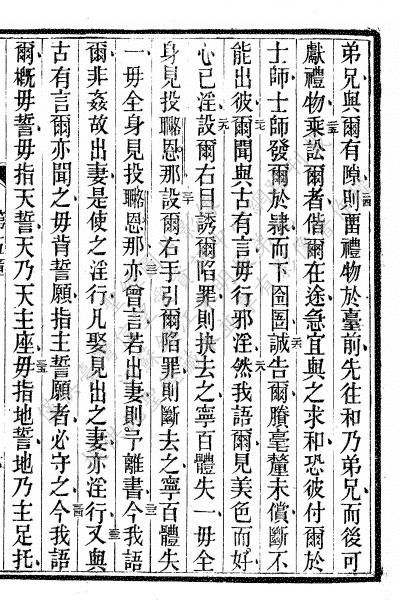 弟兄與爾有隙則畱禮物於臺前先往和乃弟兄而後可
獻禮物乘訟爾者偕爾在途急宜與之求和恐彼付爾於
士師士師發爾於隸而下囹圄誠告爾賸毫釐未償斷不
能出彼爾聞與古有言毋行邪淫然我語爾見美色而好
心已淫設爾右目誘爾陷罪則抉去之寧百體失一毋全
身見投聮恩那設爾右手引爾陷罪則斷去之寧百體失
一毋全身見投聮恩那亦曾言若出妻則予離書今我語
爾非姦故出妻是使之淫行凡娶見出之妻亦淫行又與
古有言爾亦聞之毋背誓願指主誓願者必守之今我語
爾概毋誓毋指天誓天乃天主座毋指地誓地乃主足托